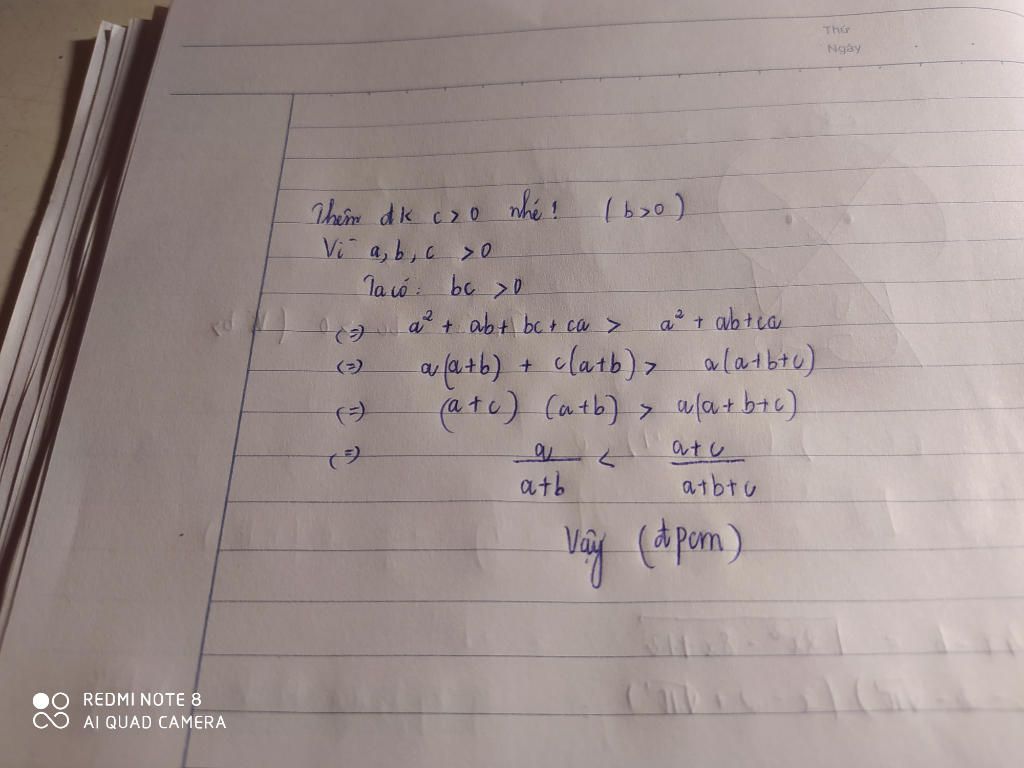 Thứ
Ngày
Thêm đk c > 0 nhé! (b > 0)
Vì a, b, c > 0
Ta có: bc > 0
(=) a² + ab + bc + ca > a² + ab + ca
(=) a(a+b) + c(a+b) > a(a+b+c)
(=) (a+c) (a+b) > a(a+b+c)
(=) a/(a+b) < (a+c)/(a+b+c)
Vậy (đpcm)
REDMI NOTE 8
AI QUAD CAMERA